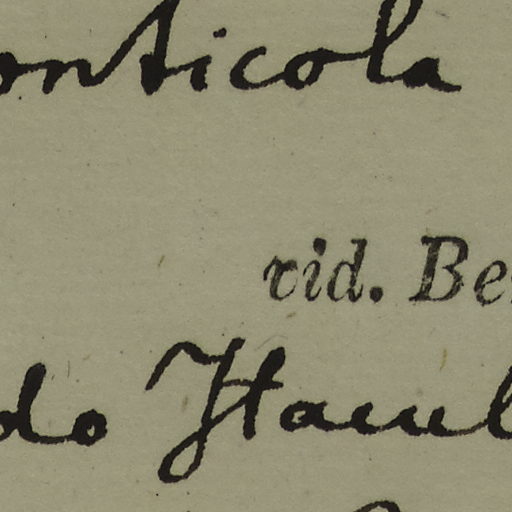 onticola
vid. Be
do Itacul